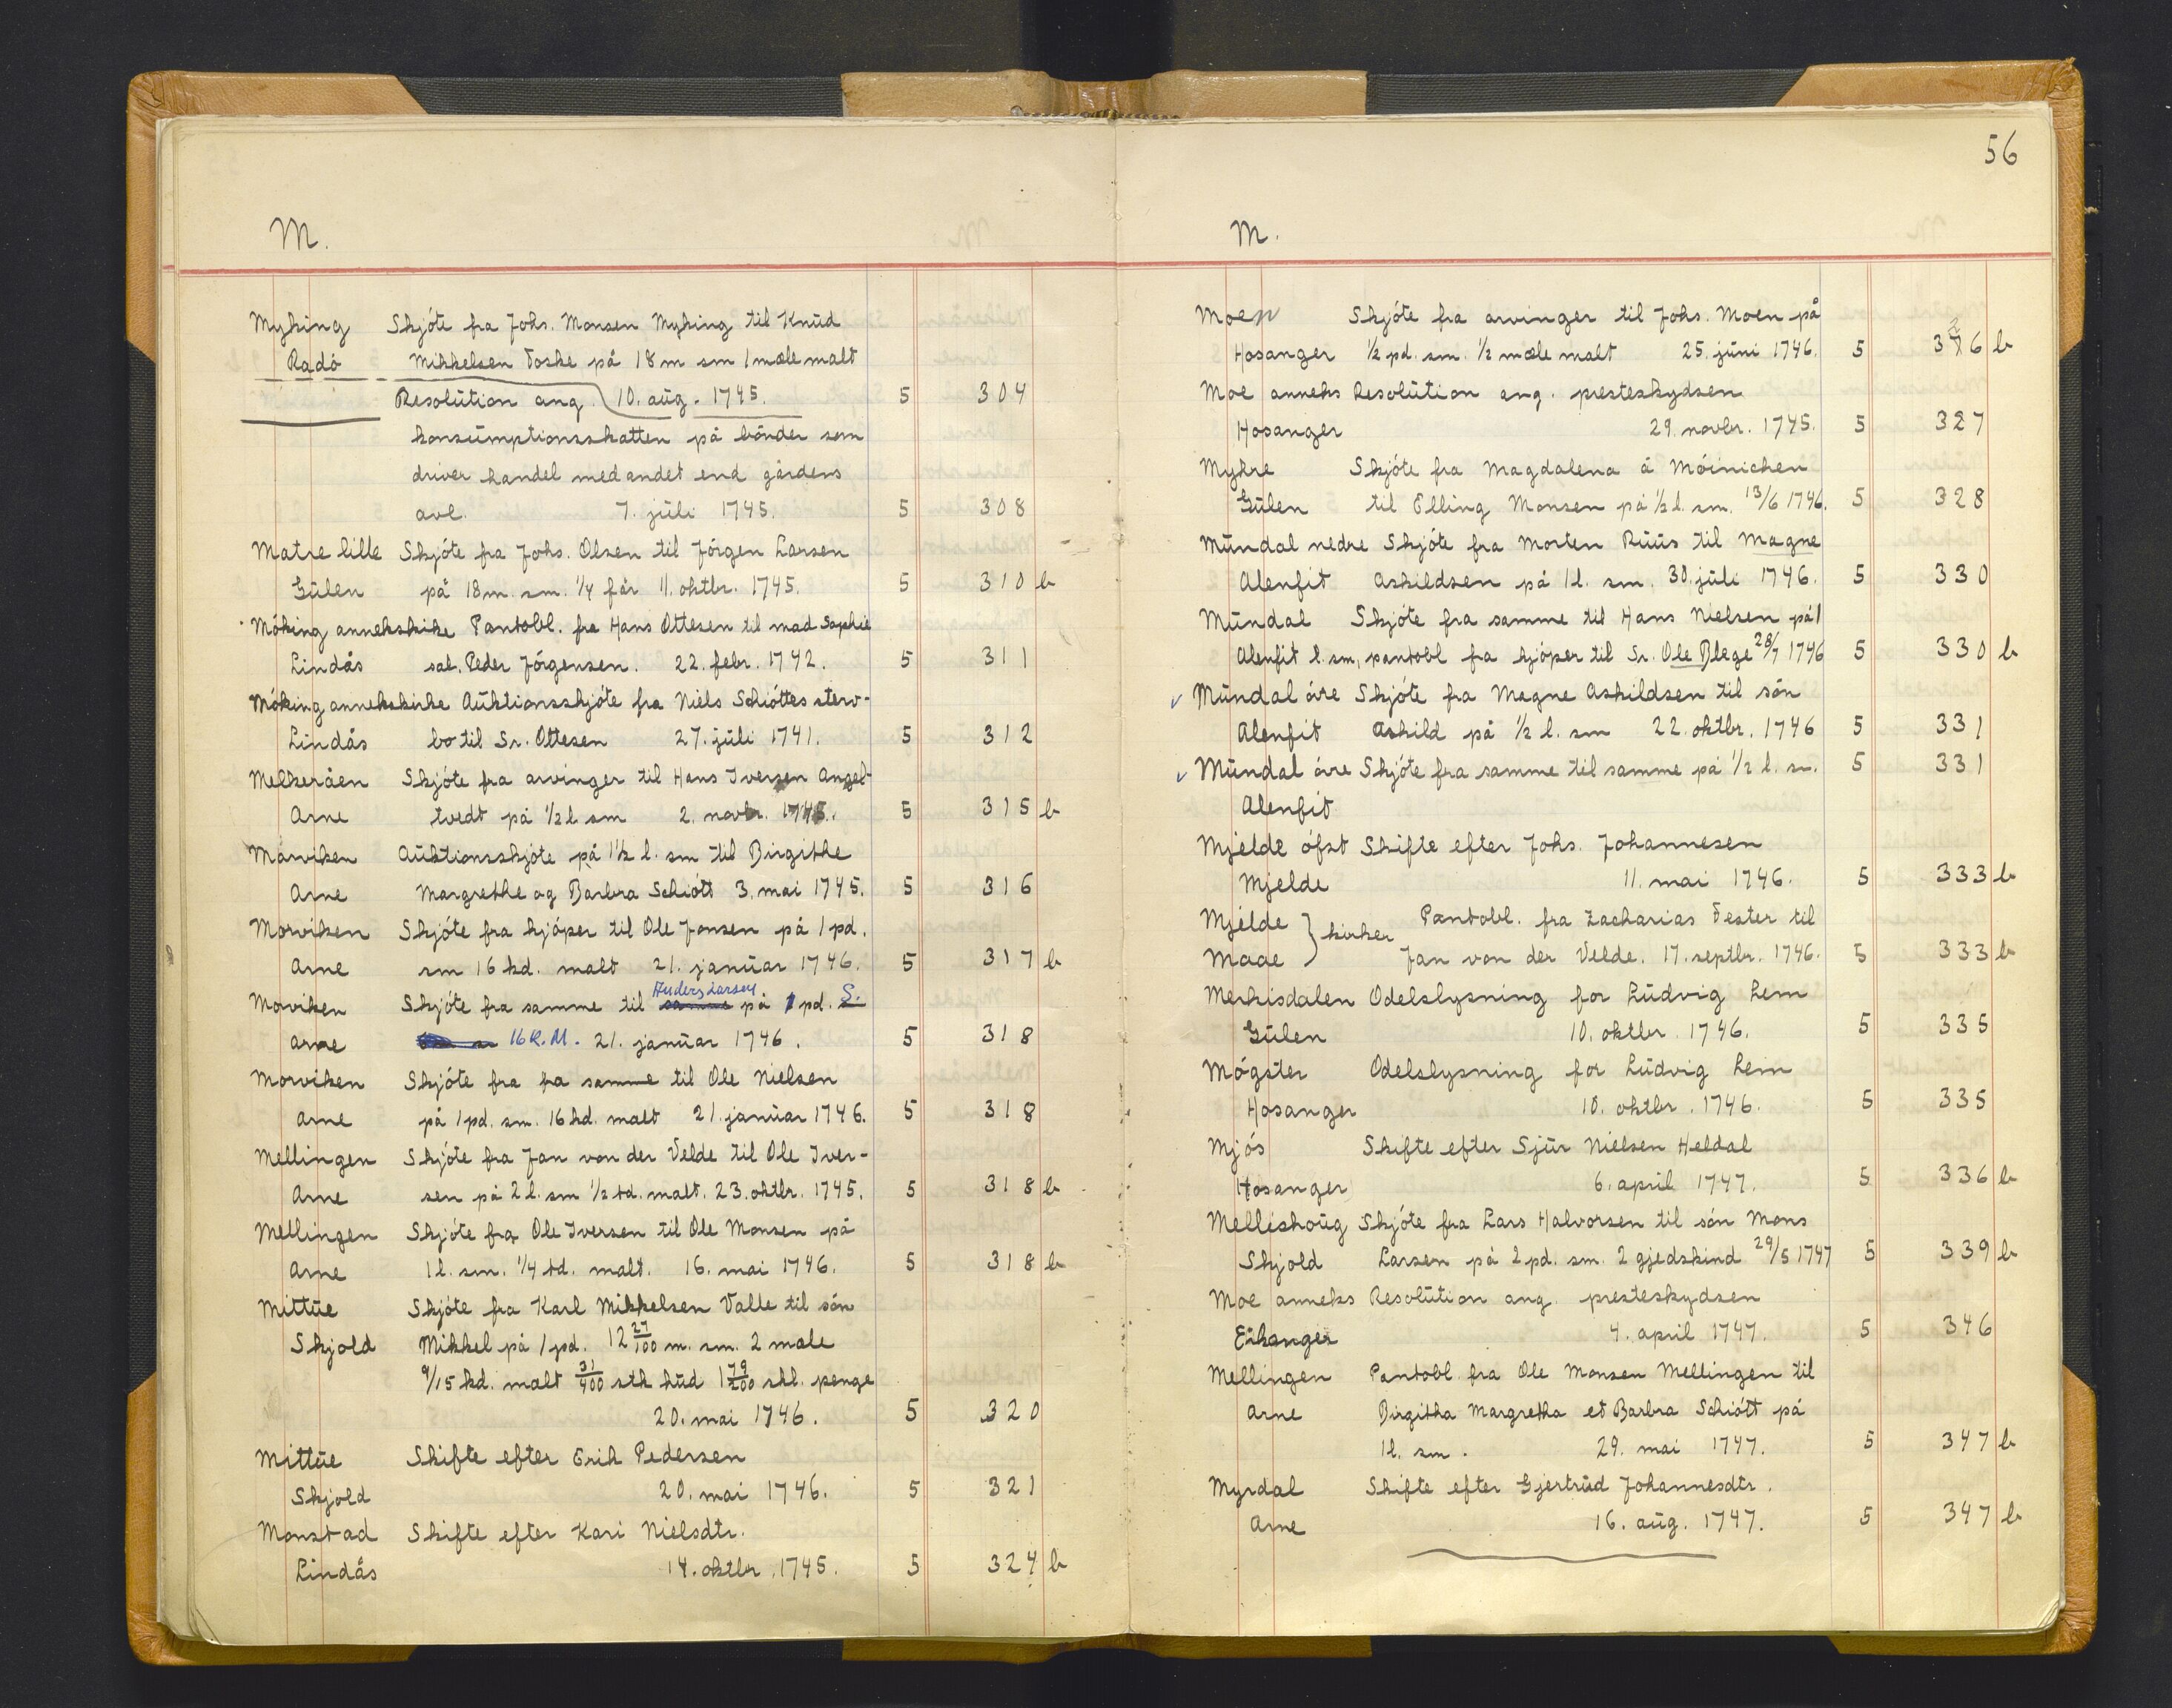 M.
Myking Skjóte fra Johs. Monsen Myking til Knūd
Radó Mikkelsen Toske på 18 m sm 1 mæle malt
Resolūtion ang. 10. aūg. 1745. 5 304
konsūmptionsskatten på bónder som
driver handel med andet end gårdens
avl. 7. jūli 1745. 5 308
Matre lille Skjóte fra Johs. Olsen til Jórgen Larsen
Gūlen på 18 m. sm. 1/4 får 11. oktbr. 1745. 5 310 b
Móking annekskike Pantobl. fra Hans Ottesen til mad Sophie
Lindås sal. Peder Jórgensen. 22. febr. 1742. 5 311
Móking annekskirke Aūktionsskjóte fra Niels Schióttes sterv-
Lindås bo til Sr. Ottesen 27. jūli 1741. 5 312
Melkeråen Skjóte fra arvinger til Hans Iversen Angel-
Arne tvedt på 1/2 l sm 2. novbr. 1745. 5 315 b
Morviken Aūktionsskjóte på 1 1/2 l. sm til Birgithe
Arne Margrethe og Barbra Schiótt 3. mai 1745. 5 316
Morviken Skjóte fra kjóper til Ole Jonsen på 1 pd.
Arne sm 16 kd. malt 21. janūar 1746. 5 317 b
Anders Larsen
Morviken Skjóte fra samme til samme på 1 pd. S.
Arne 16 K. M. 21. janūar 1746. 5 318
Morviken Skjóte fra fra samme til Ole Nielsen
Arne på 1 pd. sm. 16 kd. malt 21. janūar 1746. 5 318
Mellingen Skjóte fra Jan von der Velde til Ole Iver-
Arne sen på 2 l. sm 1/2 td. malt. 23. oktbr. 1745. 5 318 b
Mellingen Skjóte fra Ole Iversen til Ole Monsen på
Arne 1 l. sm. 1/4 td. malt. 16. mai 1746. 5 318 b
Mittūe Skjóte fra Karl Mikkelsen Valle til són
Skjold Mikkel på 1 pd. 12 27/100 m. sm. 2 mæle
9/15 kd. malt 31/400 stk hūd 1 79/200 skl. penge
20. mai 1746. 5 320
Mittūe Skifte efter Erik Pedersen
Skjold 20. mai 1746. 5 321
Monstad Skifte efter Kari Nielsdtr.
Lindås 14. oktbr. 1745. 5 324 b
56
M.
Moen Skjóte fra arvinger til Johs. Moen på
Hosanger 1/2 pd. sm. 1/2 mæle malt 25. jūni 1746. 5 326 b
Moe anneks Resolūtion ang. presteskydsen
Hosanger 29. novbr. 1745. 5 327
Mykre Skjóte fra Magdalena á Móinichen
Gūlen til Elling Monsen på 1/2 l. sm. 13/6 1746. 5 328
Mūndal nedre Skjóte fra Morten Rūūs til Magne
Alenfit Askildsen på 1 l. sm. 30. jūli 1746. 5 330
Mūndal Skjóte fra samme til Hans Nielsen på 1
Alenfit l. sm, pantobl fra kjóper til Sr. Ole Blege 28/7 1746 5 330 b
Mūndal óvre Skjóte fra Magne Askildsen til són
Alenfit Askild på 1/2 l. sm 22. oktbr. 1746 5 331
Mūndal óvre Skjóte fra samme til samme på 1/2 l. sm. 5 331
Alenfit
Mjelde ófst Skifte efter Johs. Johannesen
Mjelde 11. mai 1746. 5 333 b
Mjelde } kirker Pantobl. fra Zacharias Tester til
Maae Jan von der Velde. 17. septbr. 1746. 5 333 b
Merkisdalen Odelslysning for Lūdvig Lem
Gūlen 10. oktbr. 1746. 5 335
Mógster Odelslysning for Lūdvig Lem
Hosanger 10. oktbr. 1746. 5 335
Mjós Skifte efter Sjūr Nielsen Heldal
Hosanger 6. april 1747. 5 336 b
Melleshoūg Skjóte fra Lars Halvorsen til són Mons
Skjold Larsen på 2 pd. sm. 2 gjedskind 29/5 1747 5 339 b
Moe anneks Resolūtion ang. presteskydsen
Eikanger 4. april 1747. 5 346
Mellingen Pantobl. fra Ole Monsen Mellingen til
Arne Birgitha Margretha et Barbra Schiótt på
1 l. sm. 29. mai 1747. 5 347 b
Myrdal Skifte efter Gjertrūd Johannesdtr.
Arne 16. aūg. 1747. 5 347 b